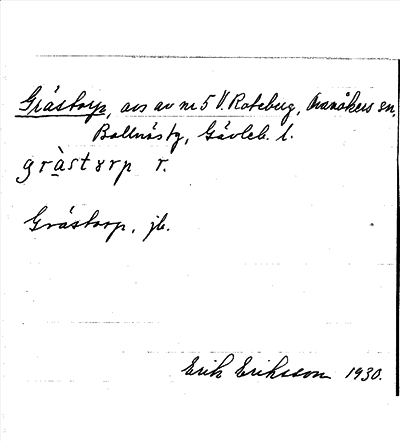 Gråstorp, avs av nr 5 V. Roteberg, Ovanåkers sn,
Bollnäs tg, Gävleb. l.
gràstɤrp r.
Gråstorp, jb.
Erik Eriksson 1930.